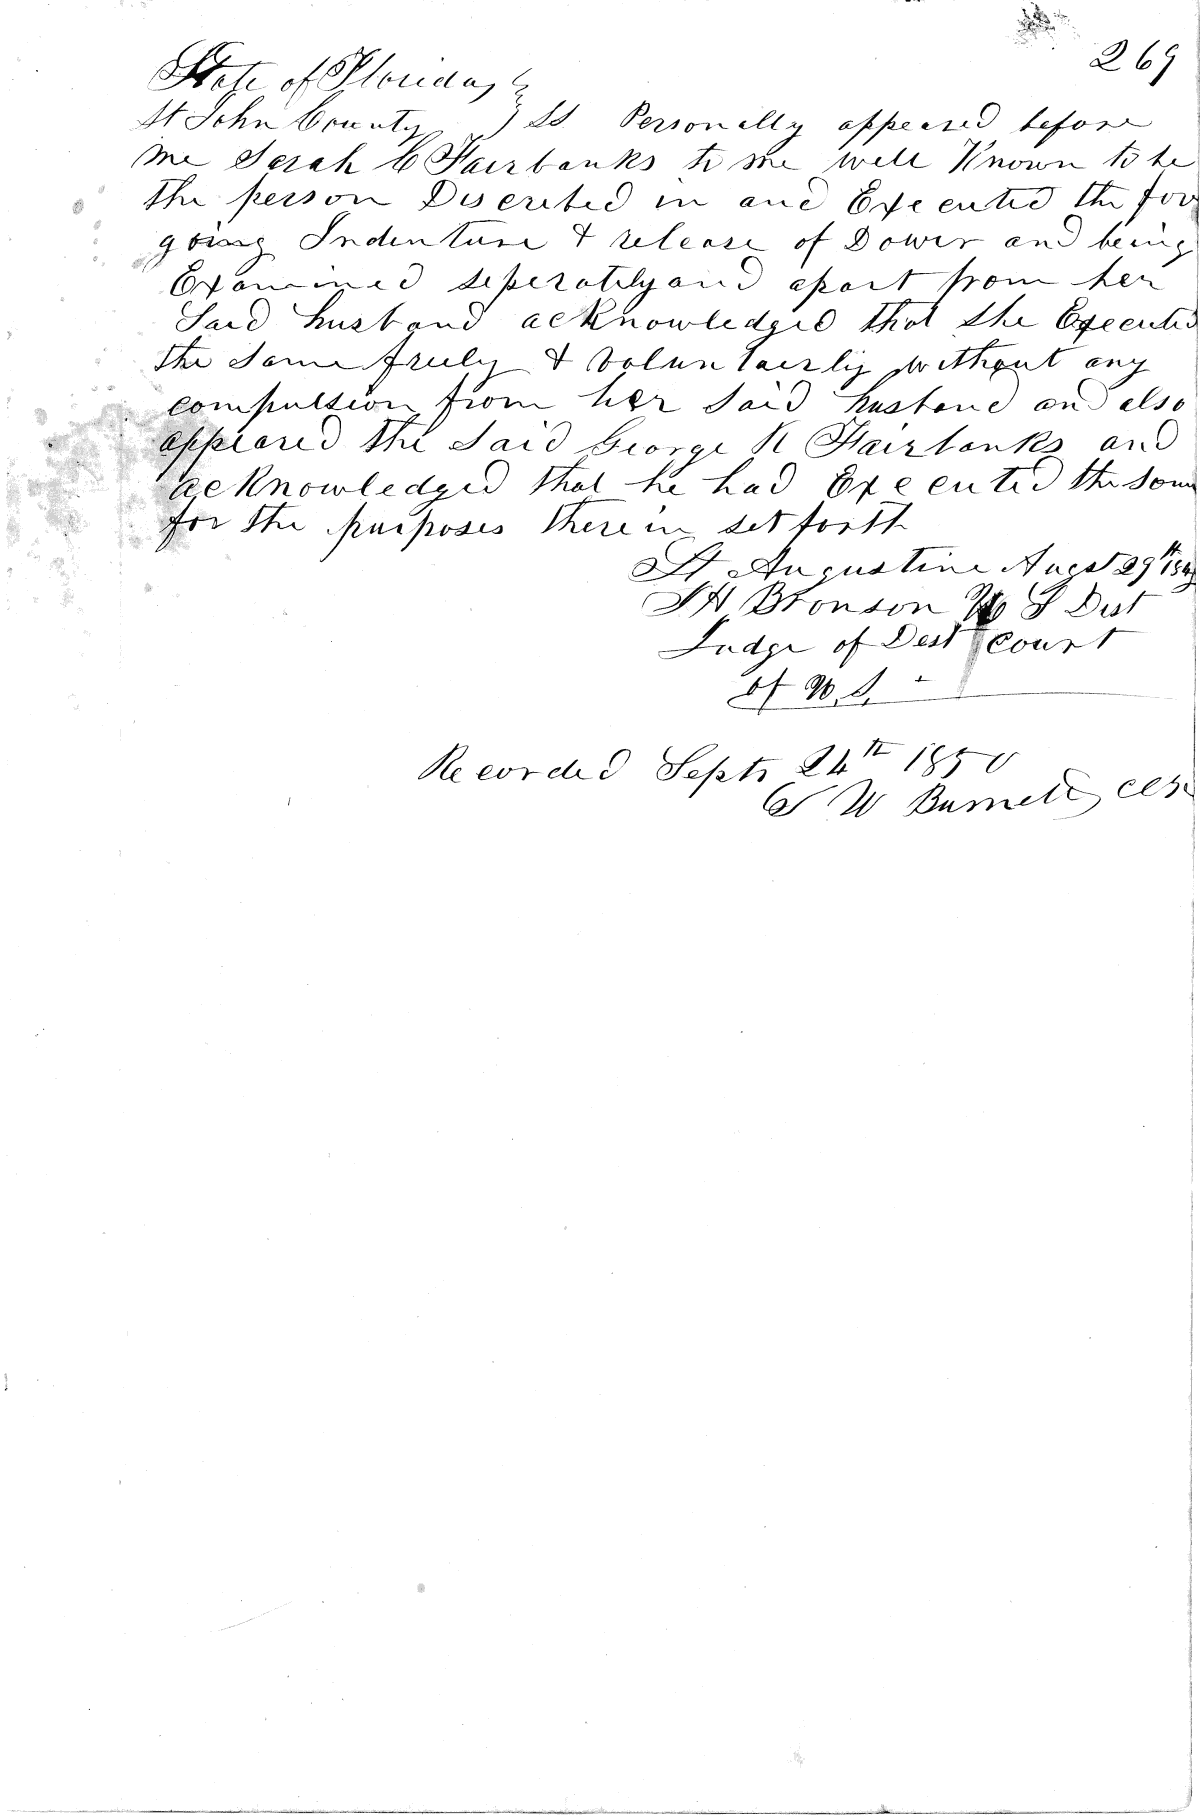 269
State of Florida
St John County } SS Personally appeared before
me Sarah C Fairbanks to me well Known to be
the person Discribed in and Executed the for
going Indenture & release of Dower and being
Examined seperately and apart from her
Said husband acknowledged that she Executed
the same freely & voluntairly without any
compulsion from her said husband and also
appeared the said George R Fairbanks and
acknowledged that he had Executed the same
for the purposes therein set forth
St Augustine Augst 29th
I H Bronson U S Dist
Judge of Dest court
of U.S.
Recorded Septr 24th 1850
W Burnett